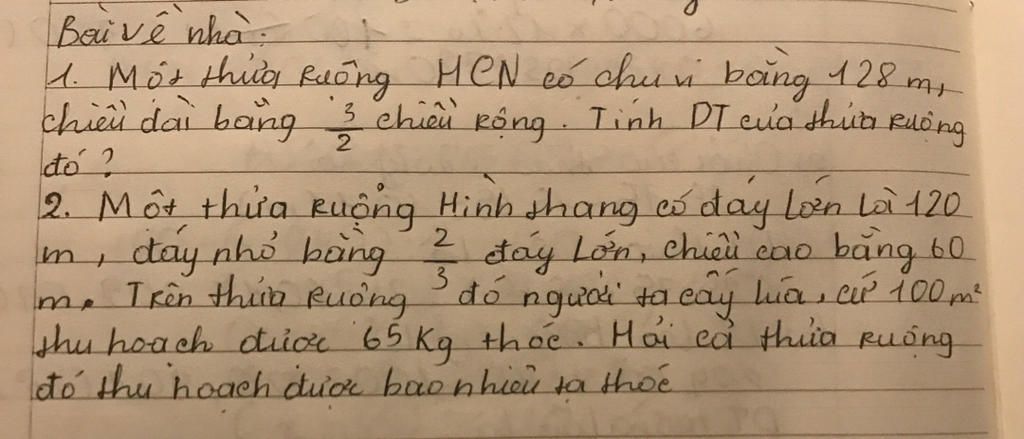 Bài về nhà:
1. Một thửa ruộng HCN có chu vi bằng 128 m,
chiều dài bằng 3/2 chiều rộng. Tính DT của thửa ruộng
đó?
2. Một thửa ruộng Hình thang có đáy lớn là 120
m, đáy nhỏ bằng 2/3 đáy lớn, chiều cao bằng 60
m. Trên thửa ruộng đó người ta cấy lúa, cứ 100 m²
thu hoạch được 65 Kg thóc. Hỏi cả thửa ruộng
đó thu hoạch được bao nhiêu tạ thóc